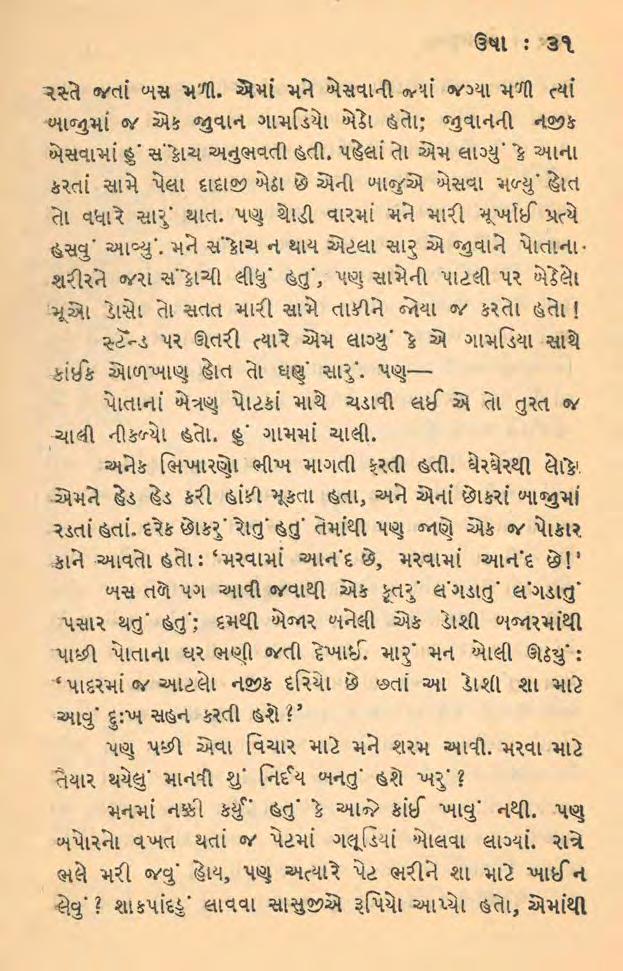 ઉષા : ૩૧
રસ્તે જતાં બસ મળી. એમાં મને બેસવાની જ્યાં જગ્યા મળી ત્યાં
બાજુમાં જ એક જુવાન ગામડિયો બેઠો હતો; જુવાનની નજીક
બેસવામાં હું સંકોચ અનુભવતી હતી. પહેલાં તો એમ લાગ્યું કે આના
કરતાં સામે પેલા દાદાજી બેઠા છે એની બાજુએ બેસવા મળ્યું હોત
તો વધારે સારું થાત. પણ થોડી વારમાં મને મારી મૂર્ખાઈ પ્રત્યે
હસવું આવ્યું. મને સંકોચ ન થાય એટલા સારુ એ જુવાને પોતાના
શરીરને જરા સંકોચી લીધું હતું, પણ સામેની પાટલી પર બેઠેલો
મૂઓ ડોસો તો સતત મારી સામે તાકીને જોયા જ કરતો હતો!
સ્ટૅન્ડ પર ઊતરી ત્યારે એમ લાગ્યું કે એ ગામડિયા સાથે
કાંઈક ઓળખાણ હોત તો ઘણું સારું. પણ—
પોતાનાં બેત્રણ પોટકાં માથે ચડાવી લઈ એ તો તુરત જ
ચાલી નીકળ્યો હતો. હું ગામમાં ચાલી.
અનેક ભિખારણો ભીખ માગતી ફરતી હતી. ઘેરઘેરથી લોકો
એમને હેડ હેડ કરી હાંકી મૂકતા હતા, અને એનાં છોકરાં બાજુમાં
રડતાં હતાં. દરેક છોકરું રોતું હતું તેમાંથી પણ જાણે એક જ પોકાર
કાને આવતો હતો: ‘મરવામાં આનંદ છે, મરવામાં આનંદ છે!’
બસ તળે પગ આવી જવાથી એક કૂતરું લંગડાતું લંગડાતું
પસાર થતું હતું; દમથી બેજાર બનેલી એક ડોશી બજારમાંથી
પાછી પોતાના ઘર ભણી જતી દેખાઈ. મારું મન બોલી ઊઠ્યું :
‘પાદરમાં જ આટલો નજીક દરિયો છે છતાં આ ડોશી શા માટે
આવું દુઃખ સહન કરતી હશે?’
પણ પછી એવા વિચાર માટે મને શરમ આવી. મરવા માટે
તૈયાર થયેલું માનવી શું નિર્દય બનતું હશે ખરું?
મનમાં નક્કી કર્યું હતું કે આજે કાંઈ ખાવું નથી. પણ
બપોરનો વખત થતાં જ પેટમાં ગલૂડિયાં બોલવા લાગ્યાં. રાત્રે
ભલે મરી જવું હોય, પણ અત્યારે પેટ ભરીને શા માટે ખાઈ ન
લેવું? શાકપાંદડું લાવવા સાસુજીએ રૂપિયો આપ્યો હતો, એમાંથી